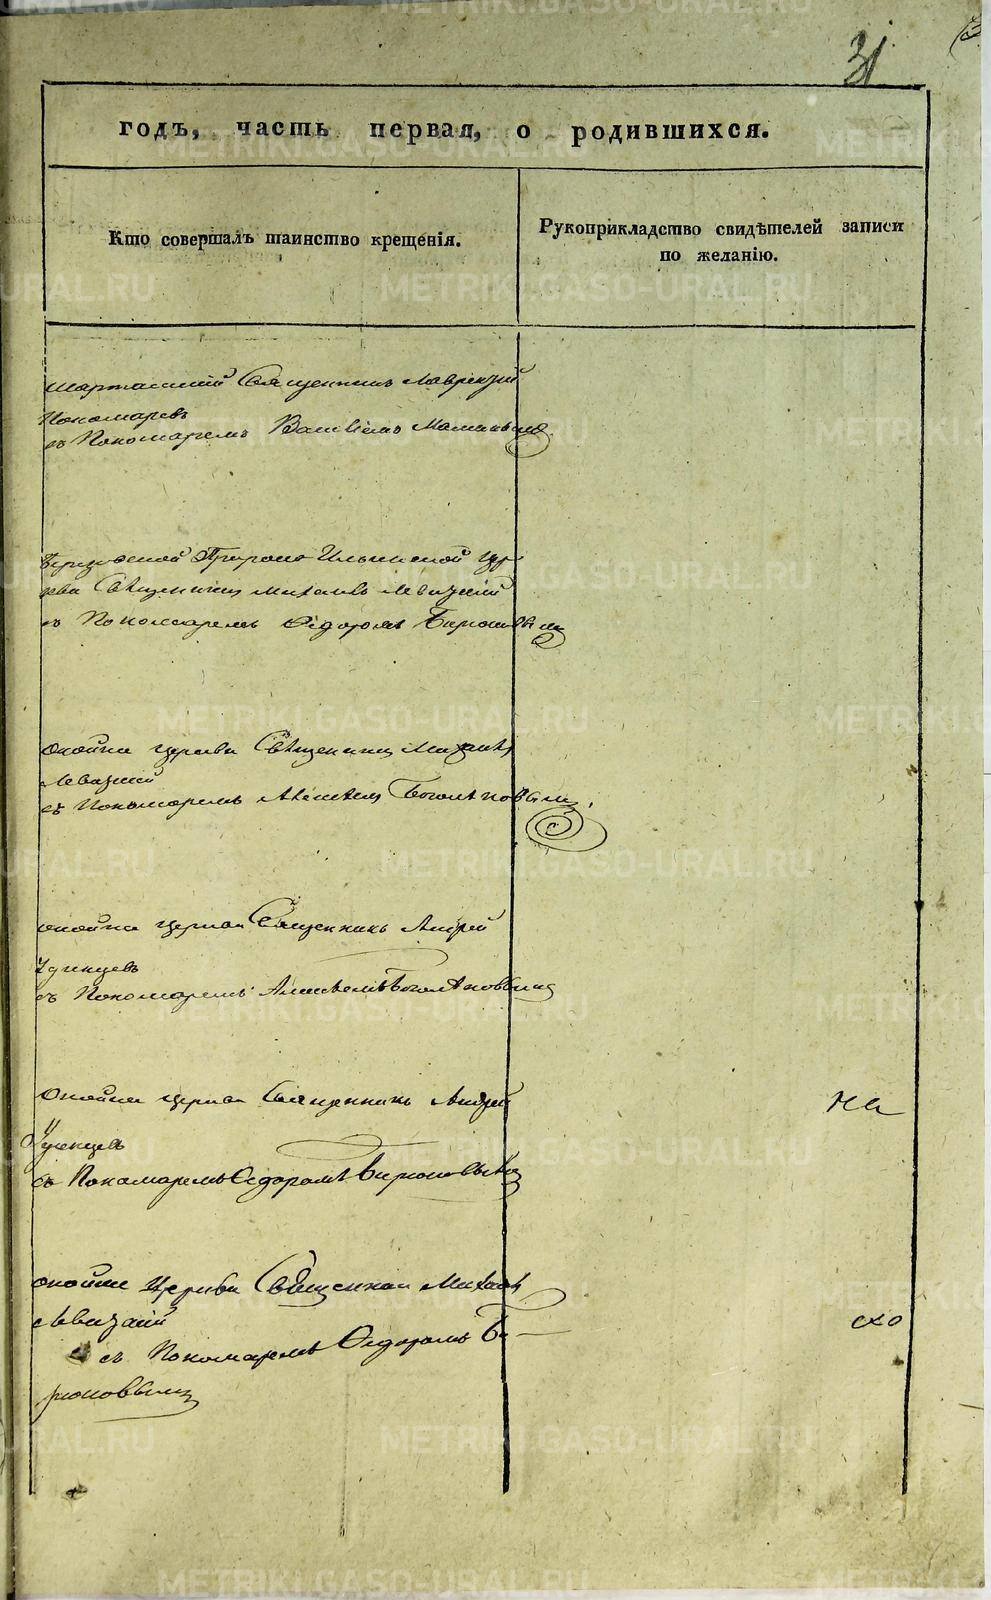 31
годъ, часть первая, о родившихся.
Кто совершалъ таинство крещенія.
Рукоприкладство свидѣтелей записи
по желанію.
Шарташскій Священникъ Лаврентій
Пономаревъ
съ Пономаремъ Василіемъ
Пророко Ильинской цер
кви Священникъ Михаилъ Левицкій
съ Пономаремъ Ѳедоромъ Бирюковымъ
оной церкви Священникъ Михаилъ
Левицкій
съ Пономаремъ Алексѣемъ Боголѣповымъ.
оной церкви Священникъ Андрей
Удинцевъ
съ Пономаремъ Алексѣемъ Боголѣповымъ
оной церкви Священникъ Андрей
Удинцевъ
съ Пономаремъ Ѳедоромъ Бирюковымъ
на
оной Церкви Священникъ Михаилъ
Левицкій
съ Пономаремъ Ѳедоромъ Би
рюковымъ
METRIKI.GASO-URAL.RU